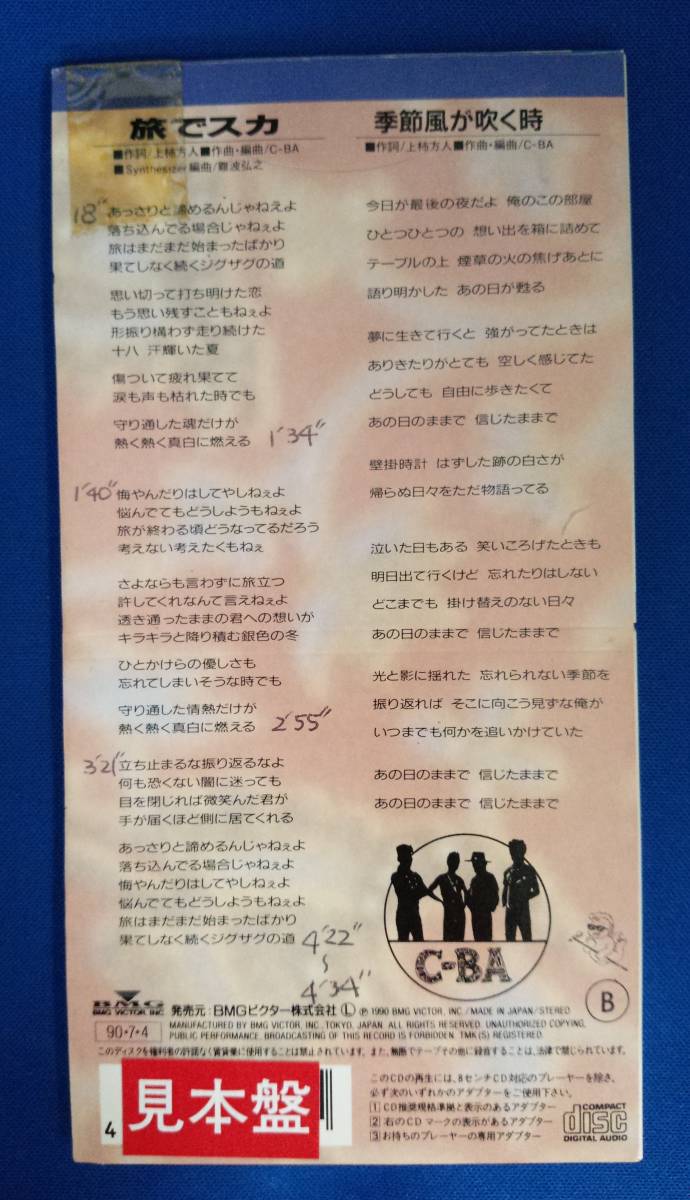 旅でスカ
■作詞/上柿方人■作曲・編曲/C-BA
■Synthesizer編曲/難波弘之
18" あっさりと諦めるんじゃねえよ
落ち込んでる場合じゃねぇよ
旅はまだまだ始まったばかり
果てしなく続くジグザグの道
思い切って打ち明けた恋
もう思い残すこともねぇよ
形振り構わず走り続けた
十八 汗輝いた夏
傷ついて疲れ果てて
涙も声も枯れた時でも
守り通した魂だけが
熱く熱く真白に燃える 1'34"
1'40" 悔やんだりはしてやしねぇよ
悩んでてもどうしようもねぇよ
旅が終わる頃どうなってるだろう
考えない考えたくもねぇ
さよならも言わずに旅立つ
許してくれなんて言えねぇよ
透き通ったままの君への想いが
キラキラと降り積む銀色の冬
ひとかけらの優しさも
忘れてしまいそうな時でも
守り通した情熱だけが
熱く熱く真白に燃える 2'55"
3'21" 立ち止まるな振り返るなよ
何も恐くない闇に迷っても
目を閉じれば微笑んだ君が
手が届くほど側に居てくれる
あっさりと諦めるんじゃねぇよ
落ち込んでる場合じゃねぇよ
悔やんだりはしてやしねぇよ
悩んでてもどうしようもねぇよ
旅はまだまだ始まったばかり
果てしなく続くジグザグの道 4'22"
〜
4'34"
季節風が吹く時
■作詞/上柿方人■作曲・編曲/C-BA
今日が最後の夜だよ 俺のこの部屋
ひとつひとつの 想い出を箱に詰めて
テーブルの上 煙草の火の焦げあとに
語り明かした あの日が甦る
夢に生きて行くと 強がってたときは
ありきたりがとても 空しく感じてた
どうしても 自由に歩きたくて
あの日のままで 信じたままで
壁掛時計 はずした跡の白さが
帰らぬ日々をただ物語ってる
泣いた日もある 笑いころげたときも
明日出て行くけど 忘れたりはしない
どこまでも 掛け替えのない日々
あの日のままで 信じたままで
光と影に揺れた 忘れられない季節を
振り返れば そこに向こう見ずな俺が
いつまでも何かを追いかけていた
あの日のままで 信じたままで
あの日のままで 信じたままで
C-BA
B
BMG
BMG VICTOR, INC.
発売元:BMGビクター株式会社 Ⓛ ℗ 1990 BMG VICTOR, INC./MADE IN JAPAN/STEREO
90・7・4
MANUFACTURED BY BMG VICTOR, INC., TOKYO, JAPAN. ALL RIGHTS RESERVED. UNAUTHORIZED COPYING,
PUBLIC PERFORMANCE, BROADCASTING OF THIS RECORD IS FORBIDDEN. TMK(S) REGISTERED.
このディスクを権利者の許諾なく賃貸業に使用することは禁止されています。また、無断でテープその他に録音することは、法律で禁じられています。
見本盤
4
このCDの再生には、8センチCD対応のプレーヤーを除き、
必ず次のいずれかのアダプターをご使用下さい。
1 CD推奨規格準拠と表示のあるアダプター
2 右のCDマークの表示があるアダプター
3 お持ちのプレーヤーの専用アダプター
COMPACT
disc
DIGITAL AUDIO